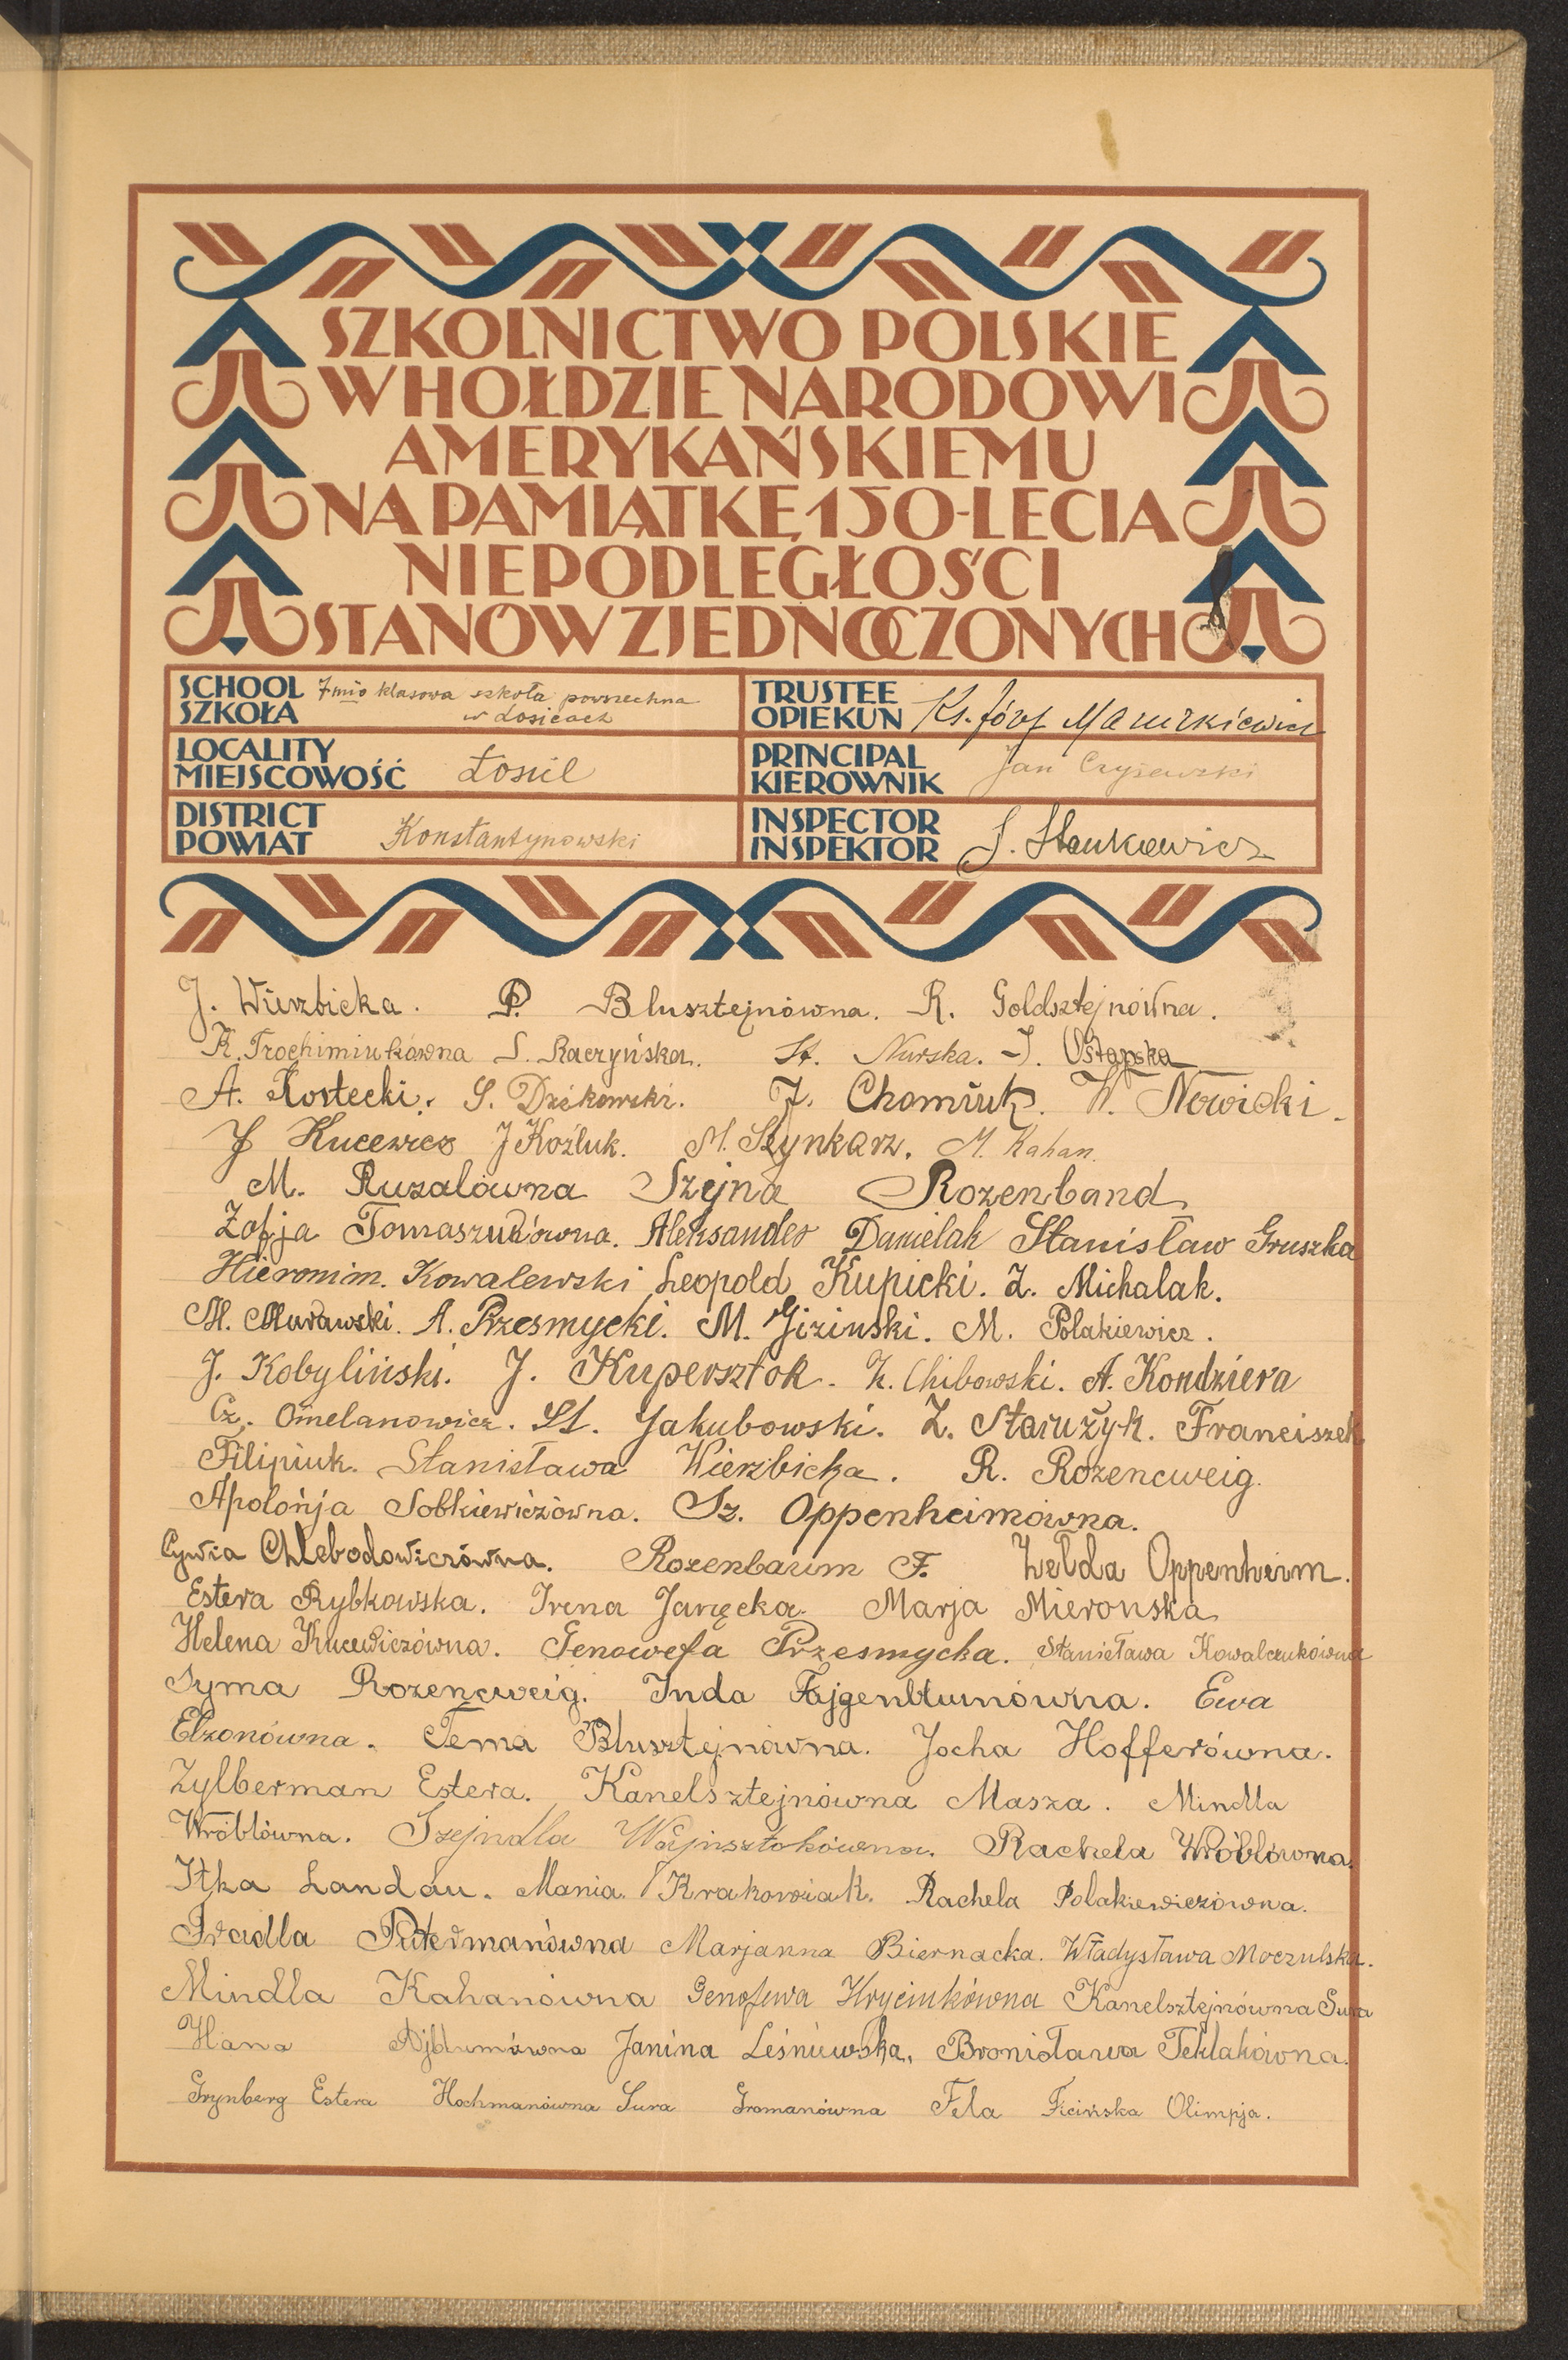 SZKOLNICTWO POLSKIE
W HOŁDZIE NARODOWI
AMERYKAŃSKIEMU
NA PAMIĄTKĘ 150-LECIA
NIEPODLEGŁOŚCI
STANÓW ZJEDNOCZONYCH
SCHOOL SZKOŁA 7mio klasowa szkoła powszechna
w Łosicach
TRUSTEE OPIEKUN Ks. Józef Mazurkiewicz
LOCALITY MIEJSCOWOŚĆ Łosice
PRINCIPAL KIEROWNIK Jan Czyżewski
DISTRICT POWIAT Konstantynowski
INSPECTOR INSPEKTOR J. Stankiewicz
J. Wierzbicka. P. Blusztejnówna. R. Goldsztejnówna.
K. Trochimiukówna S. Raczyńska. St. Nurska. J. Ostapska
A. Kostecki. S. Dzikowski. J. Chomiuk. W. Nowicki.
J Kucewicz J Koźluk. M. Szynkarz. M. Kahan.
M. Ruzalówna Szejna Rozenband
Zofja Tomaszukówna. Aleksander Danielak Stanisław Gruszka
Hieronim. Kowalewski Leopold Kupicki. Z. Michalak.
M. Murawski. A. Przesmycki. M. Giziński. M. Polakiewicz.
J. Kobyliński. J. Kupersztok. Z. Chibowski. A. Kondziera
Cz. Omelanowicz. St. Jakubowski. Z. Starużyk. Franciszek
Filipiuk. Stanisława Wierzbicka. R. Rozencweig.
Apolonja Sobkiewiczówna. Sz. Oppenheimówna.
Cywia Chlebodowiczówna. Rozenbaum F. Zelda Oppenheim.
Estera Rybkowska. Irena Janęcka. Marja Mierońska
Helena Kucewiczówna. Genowefa Przesmycka. Stanisława Kowalczukówna
Syma Rozencweig. Inda Fajgenblumówna. Ewa
Elzonówna. Tema Blusztejnówna. Jocha Hofferówna.
Zylberman Estera. Kanelsztejnówna Masza. Mindla
Wróblówna. Szejndla Wajnsztokówna. Rachela Wróblówna.
Itka Landau. Mania Krakowiak. Rachela Polakiewiczówna.
Fradla Putermanówna Marjanna Biernacka. Władysława Moczulska.
Mindla Kahanówna Genofewa Hryciukówna Kanelsztejnówna Sura
Hana Ajblumówna Janina Leśniewska. Bronisława Teklakówna.
Grynberg Estera Hochmanówna Sura Gromanówna Fela Ficińska Olimpja.